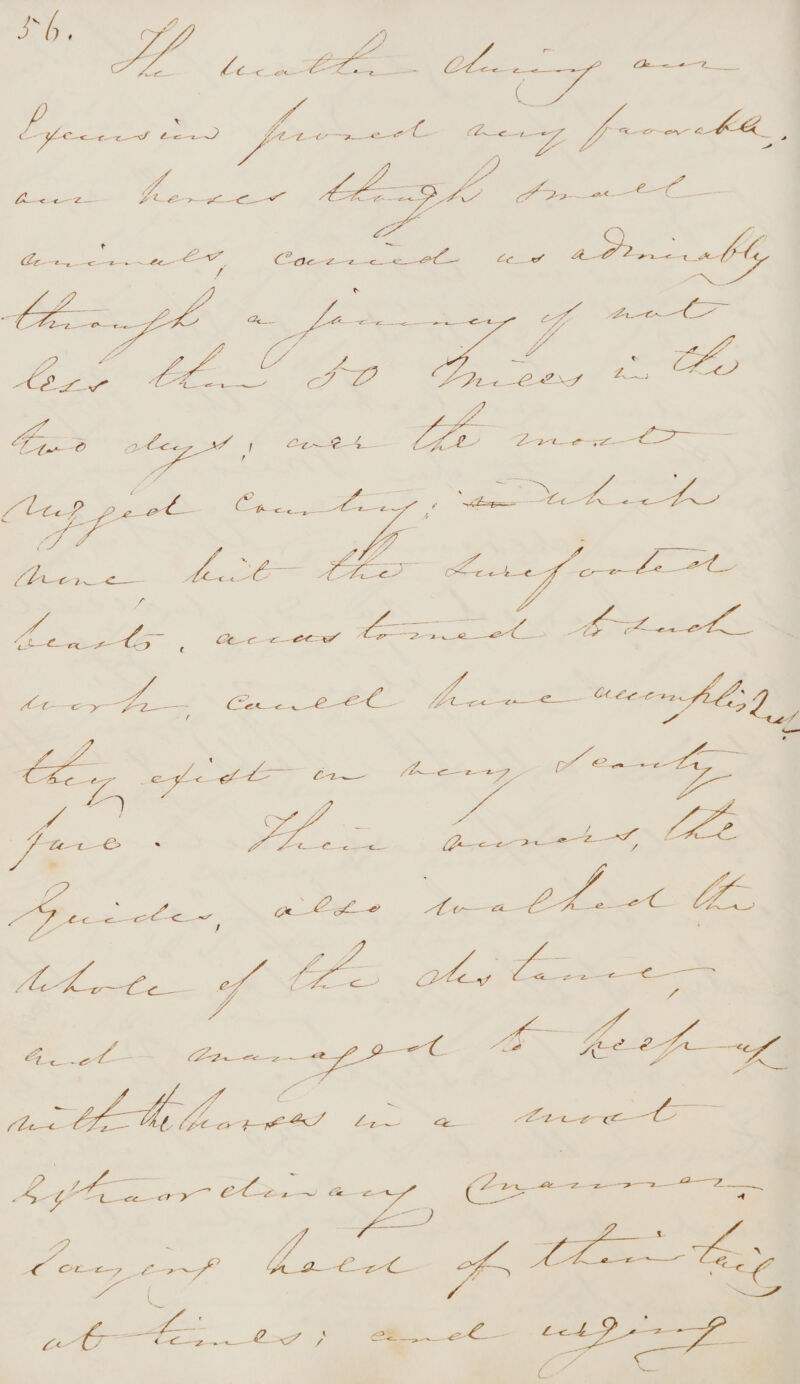 56.
The weather during our
Excursion proved very favorable,
our horses though small
animals, carried us admirably
through a journey of not
less than 50 Miles in the
two days; over the most
rugged Country; in which
none but the surefooted
beasts, accustomed to such
work, could have accomplished
they exist on very scanty
fare. Their owners, the
Guides, also walked the
whole of the distance,
and managed to keep up
with the horses in a most
Extraordinary Manner,
laying hold of their tails
at times; and urging